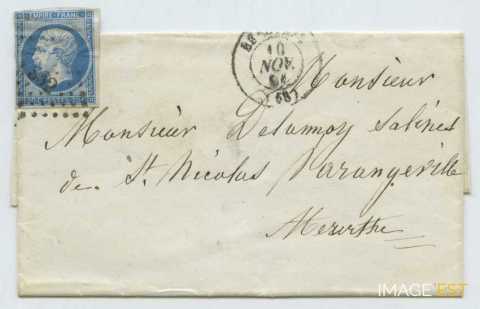 EMPIRE FRANC
10
NOV.
(68)
Monsieur
Monsieur Delunnoy Salines
de St. Nicolas Varangeville
Meurthe
IMAGE'EST